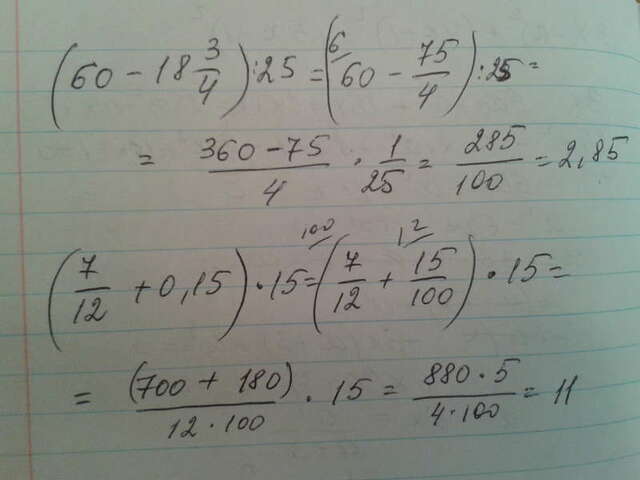 (60 - 18 3/4) : 25 = (⁶/60 - 75/4) : 25 =
= (360 - 75)/4 · 1/25 = 285/100 = 2,85
(7/12 + 0,15) · 15 = (¹⁰⁰/7/12 + ¹²/15/100) · 15 =
= (700 + 180)/(12 · 100) · 15 = (880 · 5)/(4 · 100) = 11